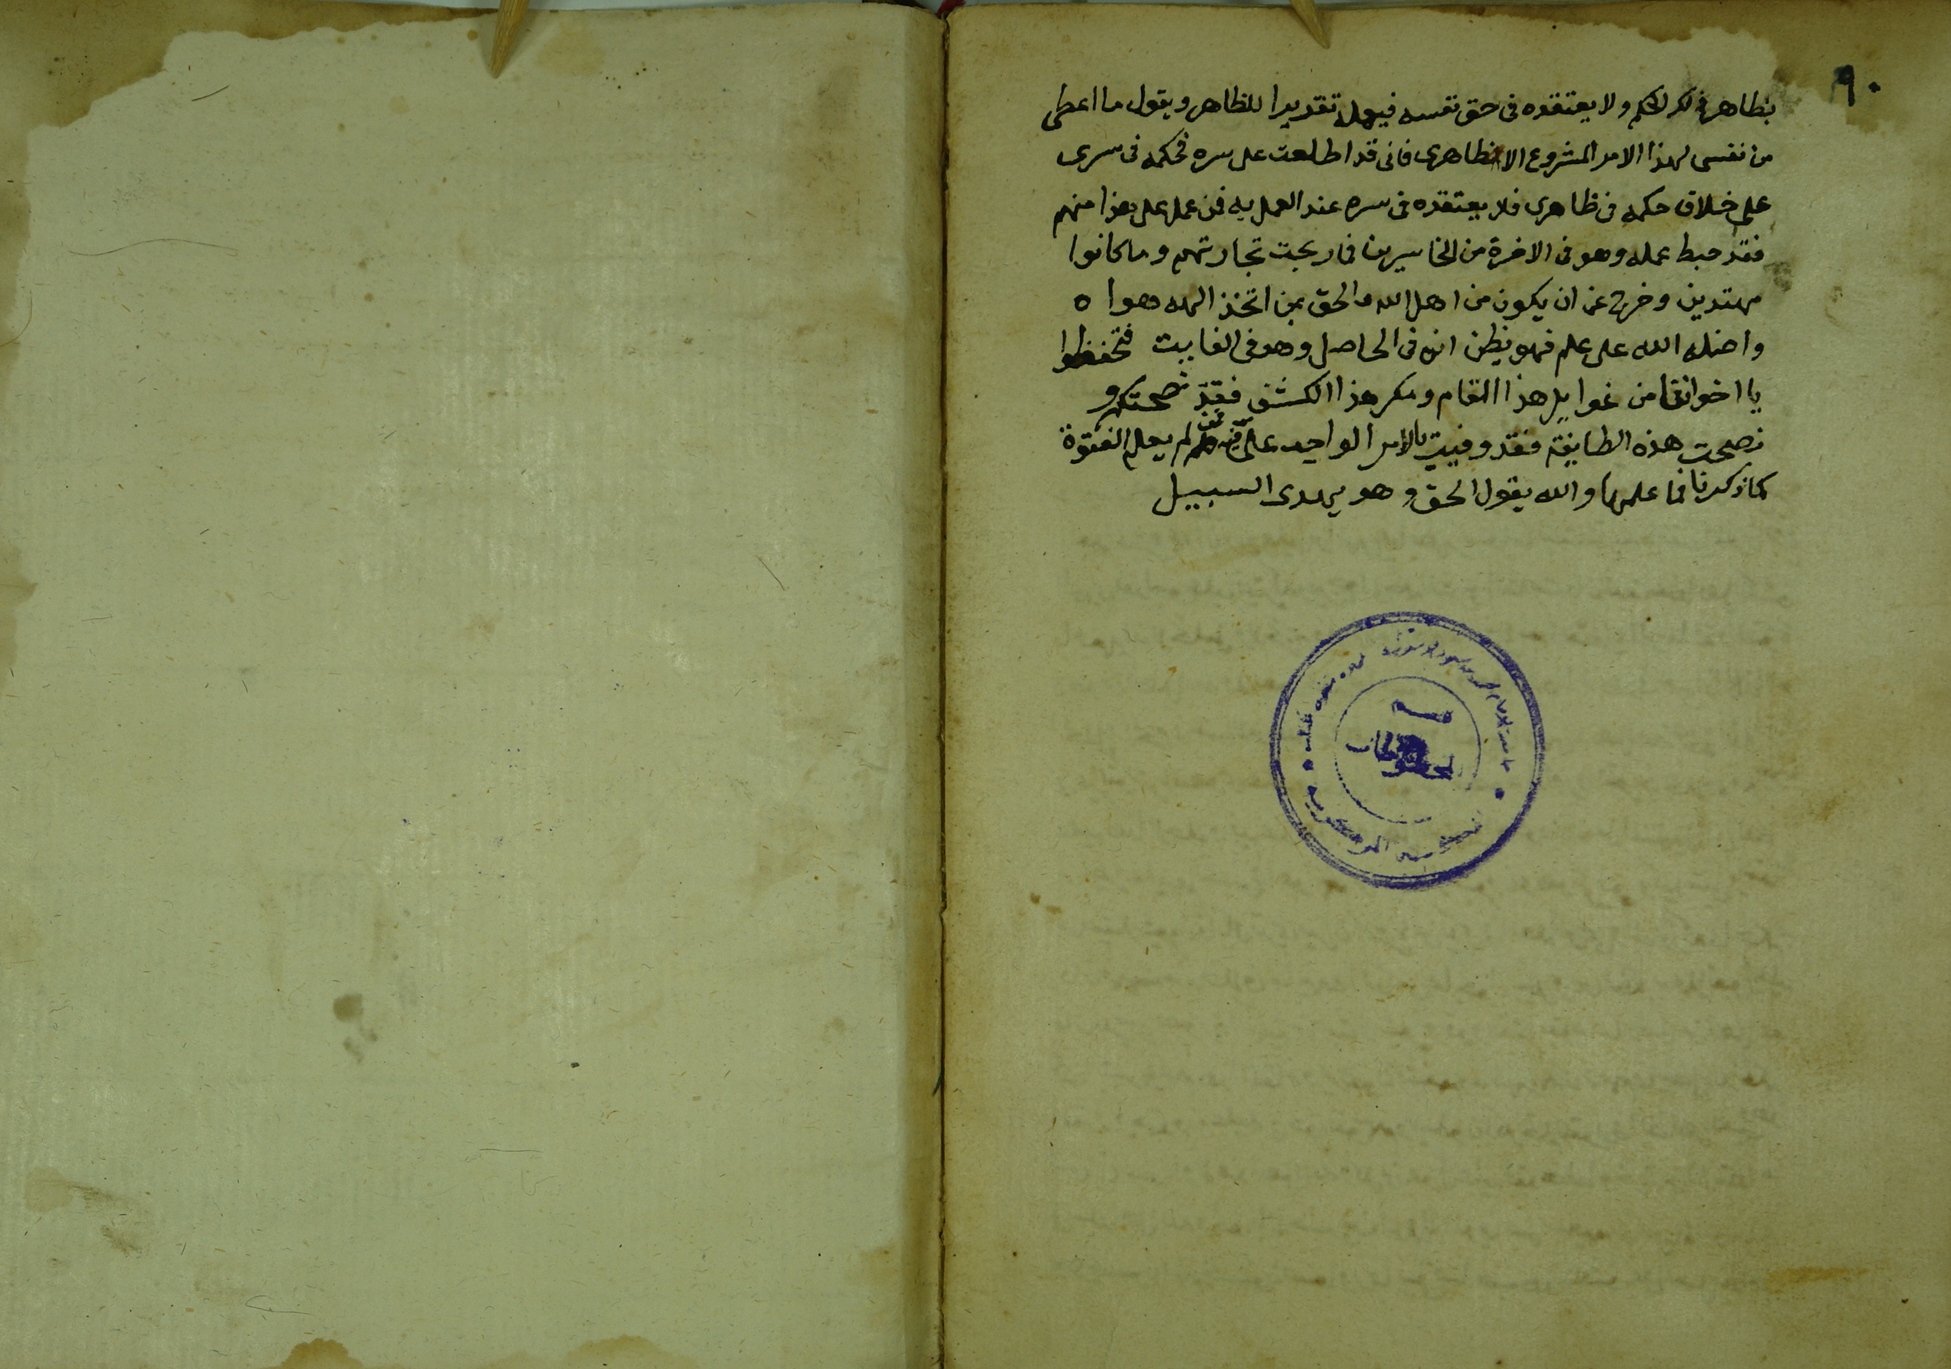 ٩٠
بظاهر ذلك الحكم ولا يعتقده فى حق نفسه فيعمله تقديرا للظاهر ويقول ما اعطى
من نفسى لهذا الامر المشروع الا ظاهرى فانى قد اطلعت على سره فحكمه فى سرى
على خلاف حكمه فى ظاهرى فلا يعتقده فى سره عند العمل به فمن عمل على هذا منهم
فقد حبط عمله وهو فى الاخرة من الخاسرين فما ربحت تجارتهم وما كانوا
مهتدين وخرج عن ان يكون من اهل الله والحق بمن اتخذ الهه هواه
واضله الله على علم فهو يظن انه فى الحاصل وهو فى الغايت فتحفظوا
يا اخواننا من غوايل هذا المقام ومكر هذا الكشف فقد نصحتكم و
نصحت هذه الطايفة فقد وفيت بالامر الواجب على فيه فمن لم يعلم الفتوة
كما ذكرنا فما علمها والله يقول الحق وهو يهدى السبيل
قسم
المخطوطات